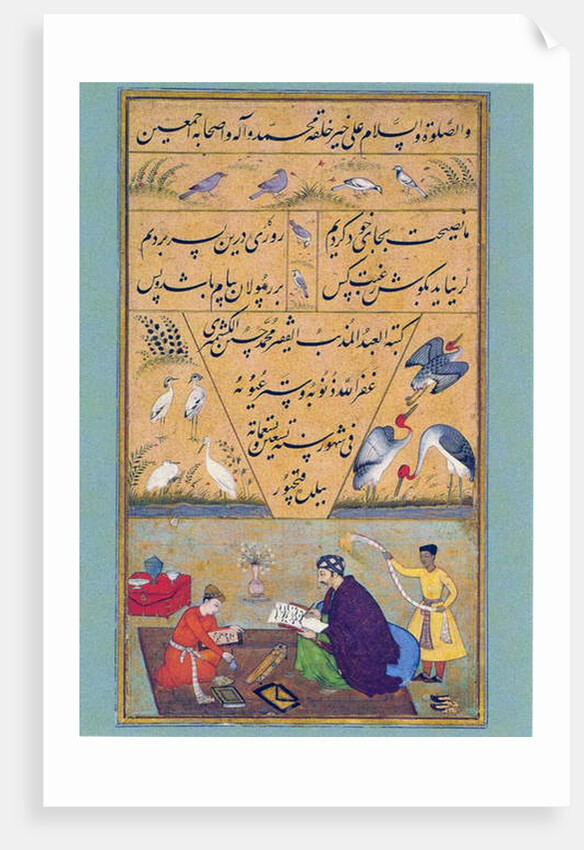 والصلوة والسلام علی خیر خلقه محمد و آله و اصحابه اجمعین
ما نصیحت بجای خود کردیم روزگاری درین بسر بردیم
گر نیاید بگوش رغبت کس بر رسولان پیام باشد و بس
کتبه العبد المذنب الفقیر محمد حسین الکشمیری
غفر الله ذنوبه و ستر عیوبه
فی شهور سنه تسعین تسعمائة
ببلدة فتحپور